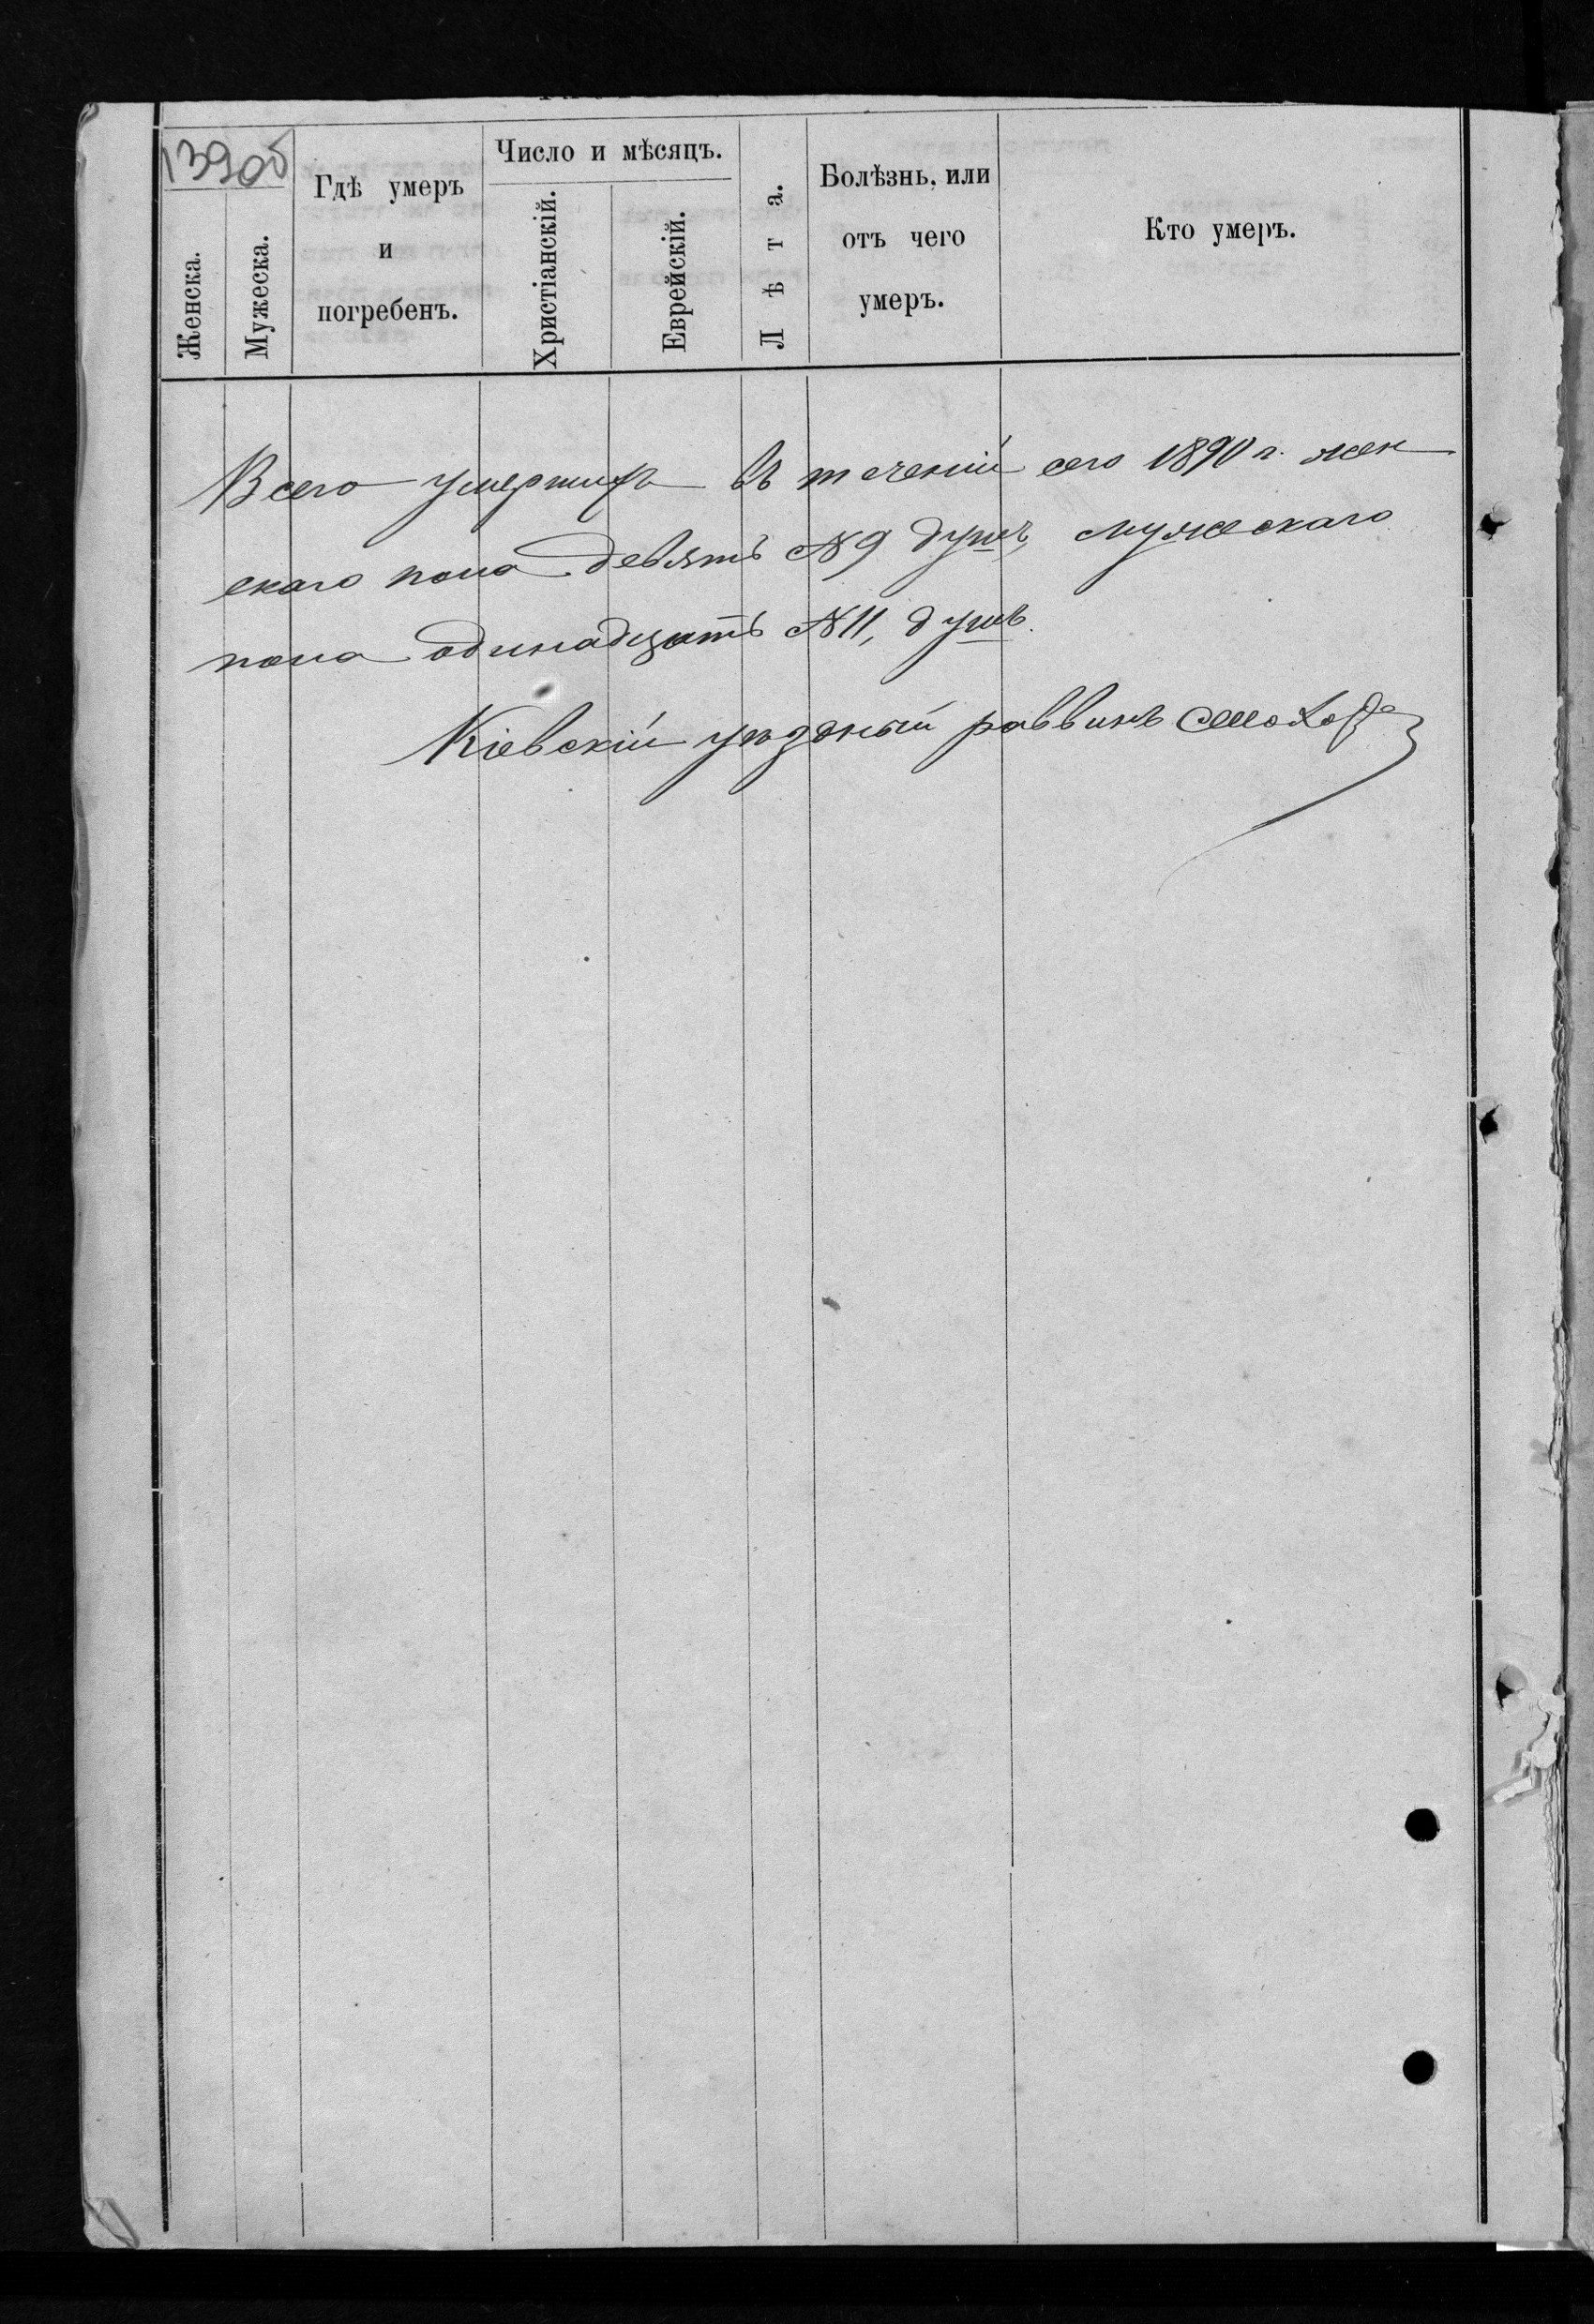 139об
Женска.
Мужеска.
Гдѣ умеръ
и
погребенъ.
Число и мѣсяцъ.
Христіанскій.
Еврейскій.
Лѣта.
Болѣзнь, или
отъ чего
умеръ.
Кто умеръ.
Всего умершихъ въ теченіи сего 1890 г. жен
скаго пола девять №9 душъ, мужескаго
пола одинадцать №11, душъ.
Кіевскій уѣздный раввинъ